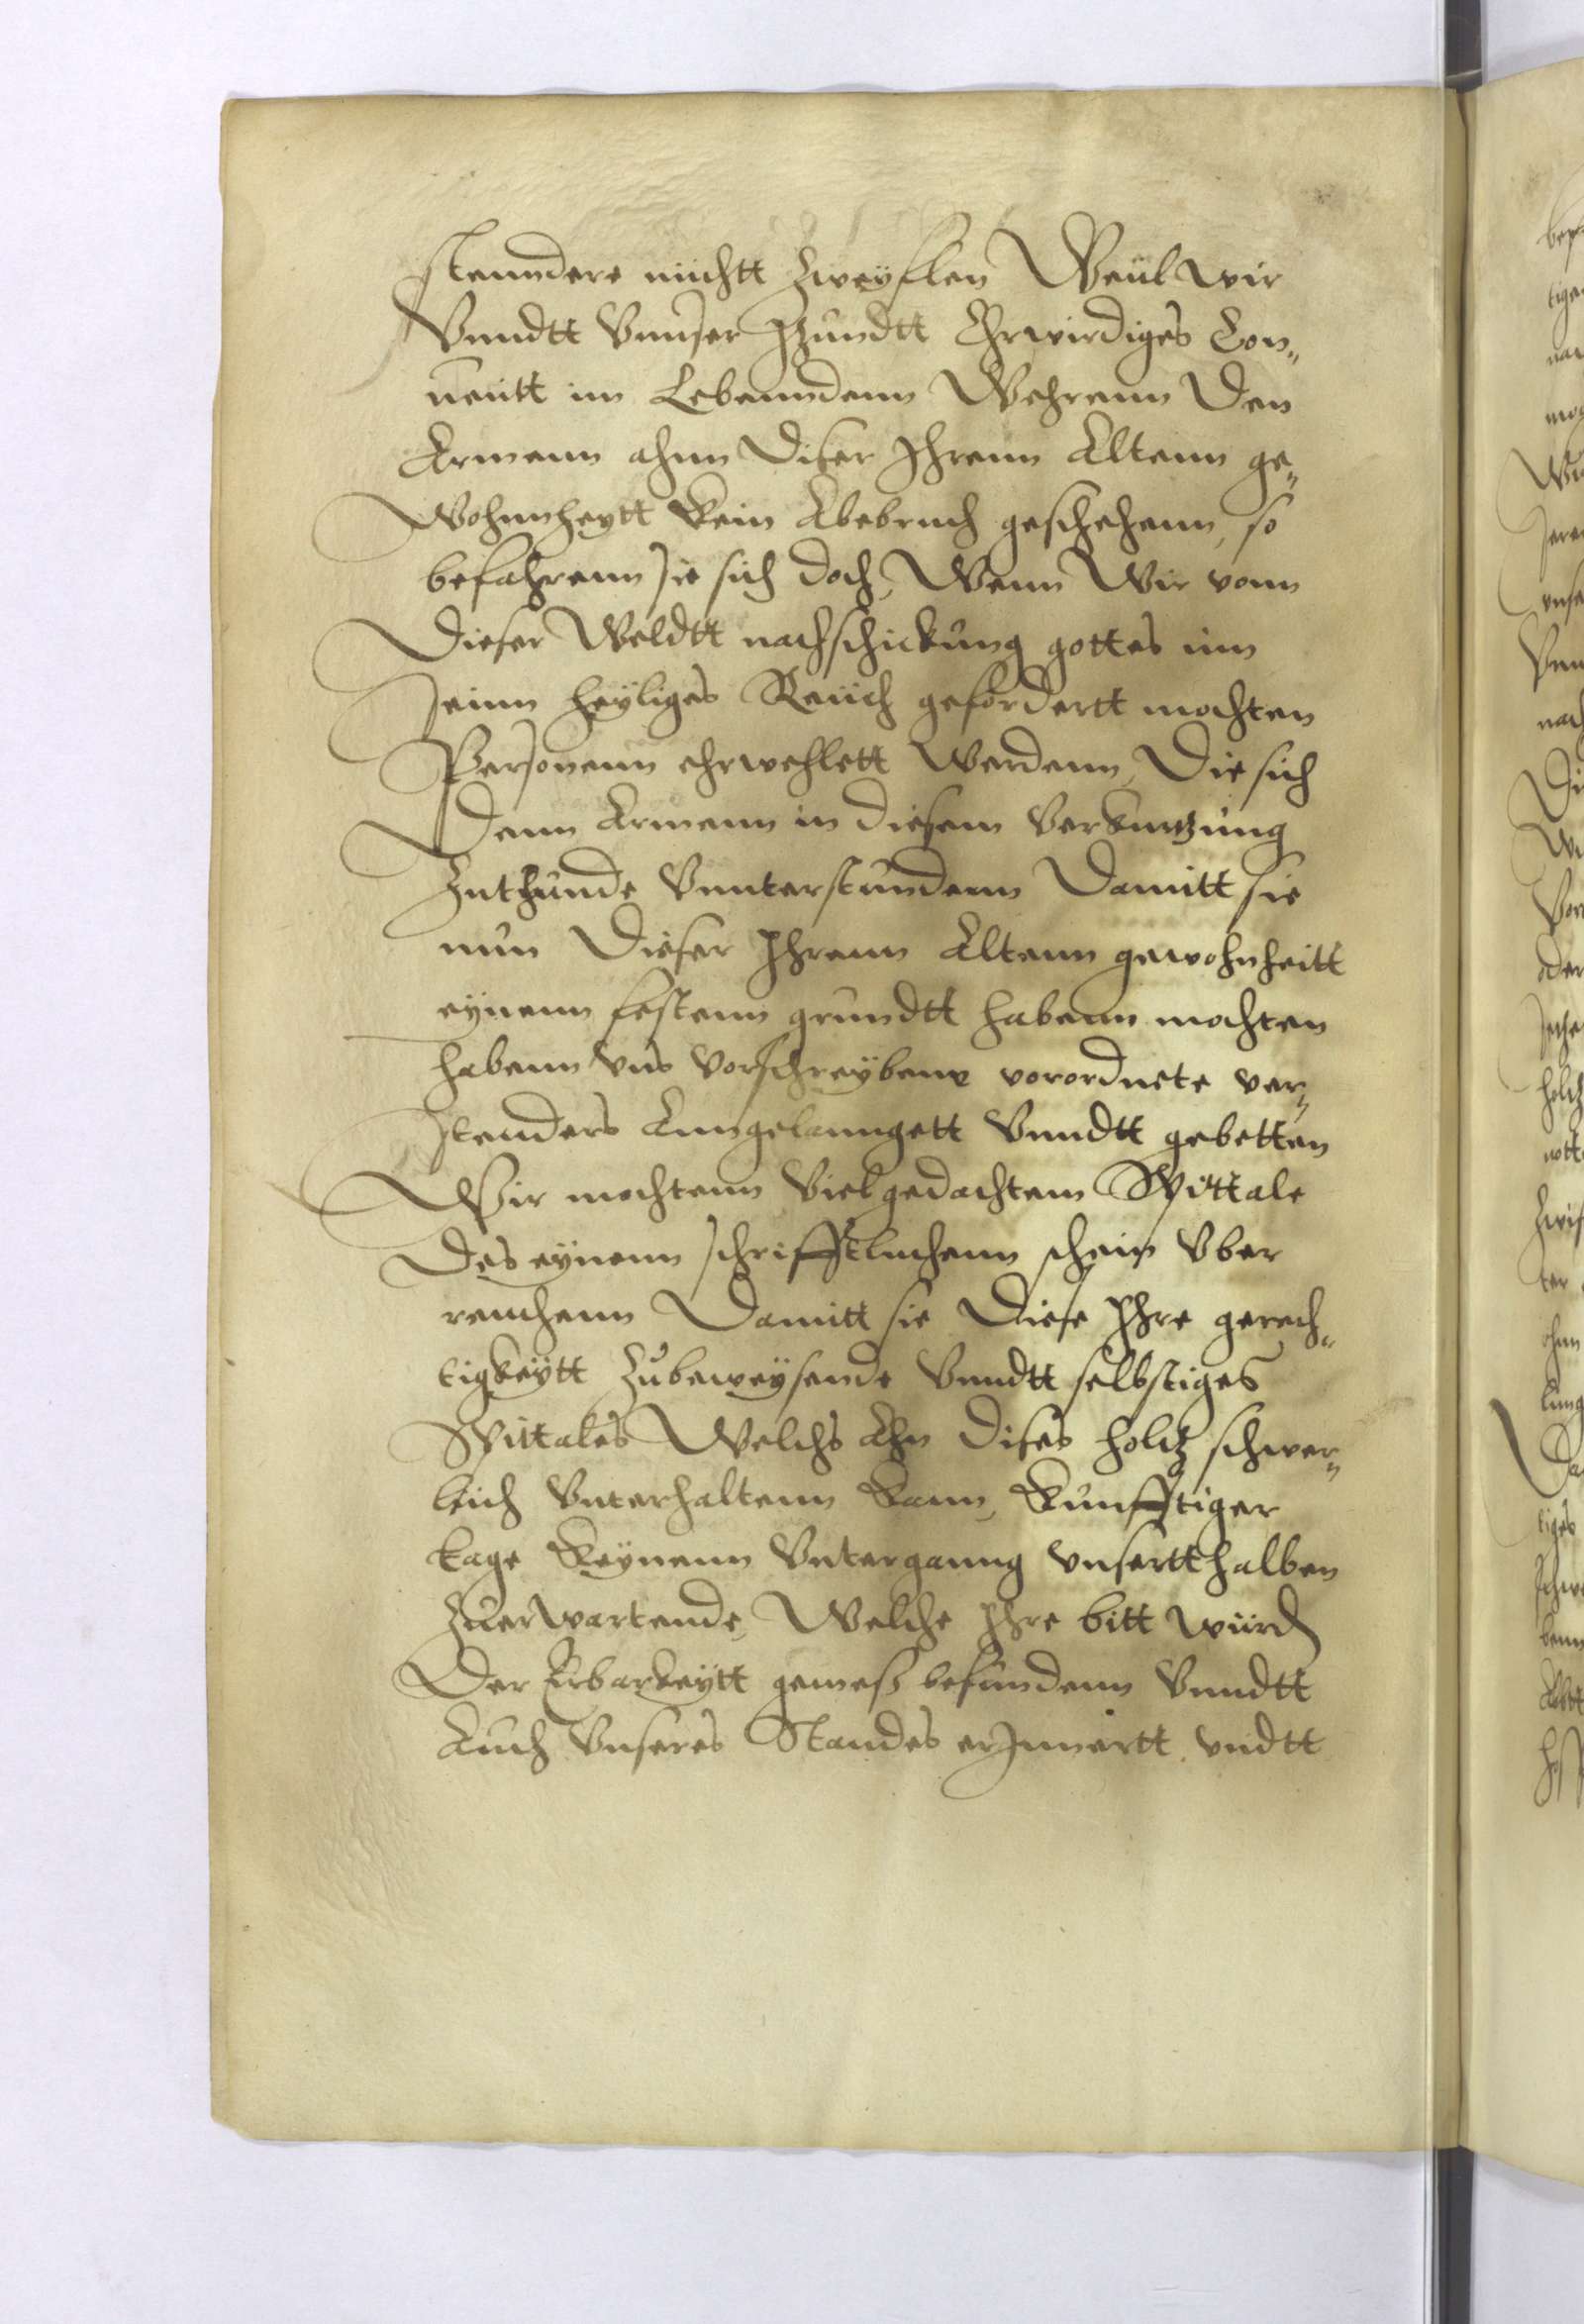 stenndere nichtt Zweyflen Weil wir
Vnndtt Vnnser Jtzundtt Ehrwirdiges Con„
uentt im Lebenndenn Wehrenn Den
Armenn ahnn Diser Jhrenn Altenn ge„
Wohnnheytt Kein Abebruch geschehenn, so
befahrenn sie sich doch, Wenn Wir vonn
Dieser Weldtt nachschickung gottes inn
seinn heyliges Reich gefordertt mochten
Personenn ehrwehlett Werdenn, Die sich
Denn Armenn in diesem Verkurtzung
Zuthunde Vnnterstundenn Damitt sie
nun Dieser Jhrenn Altenn gewohnheitt
eynenn festenn grundtt habenn mochten
habenn vns Vorschreybene verordnete ver„
stenders Anngelanngett Vnndtt gebetten
Wir mochtenn Vielgedachtem Spittale
Des eynenn schrifftlichenn schein Vber
reichenn Damitt sie Diese Jhre gerech„
tigkeytt Zubeweysende Vnndtt selbstiges
Spittales Welchs Ahn Dises holtz schwer„
lich Vnterhaltenn Kann, Kunfftiger
tage Keynenn Vnterganng vnsertthalben
Zuerwartende, Welche Jhre bitt wir
Der Erbarkeytt gemess befundenn Vnndtt
Auch Vnseres Standes erJnnertt vndtt